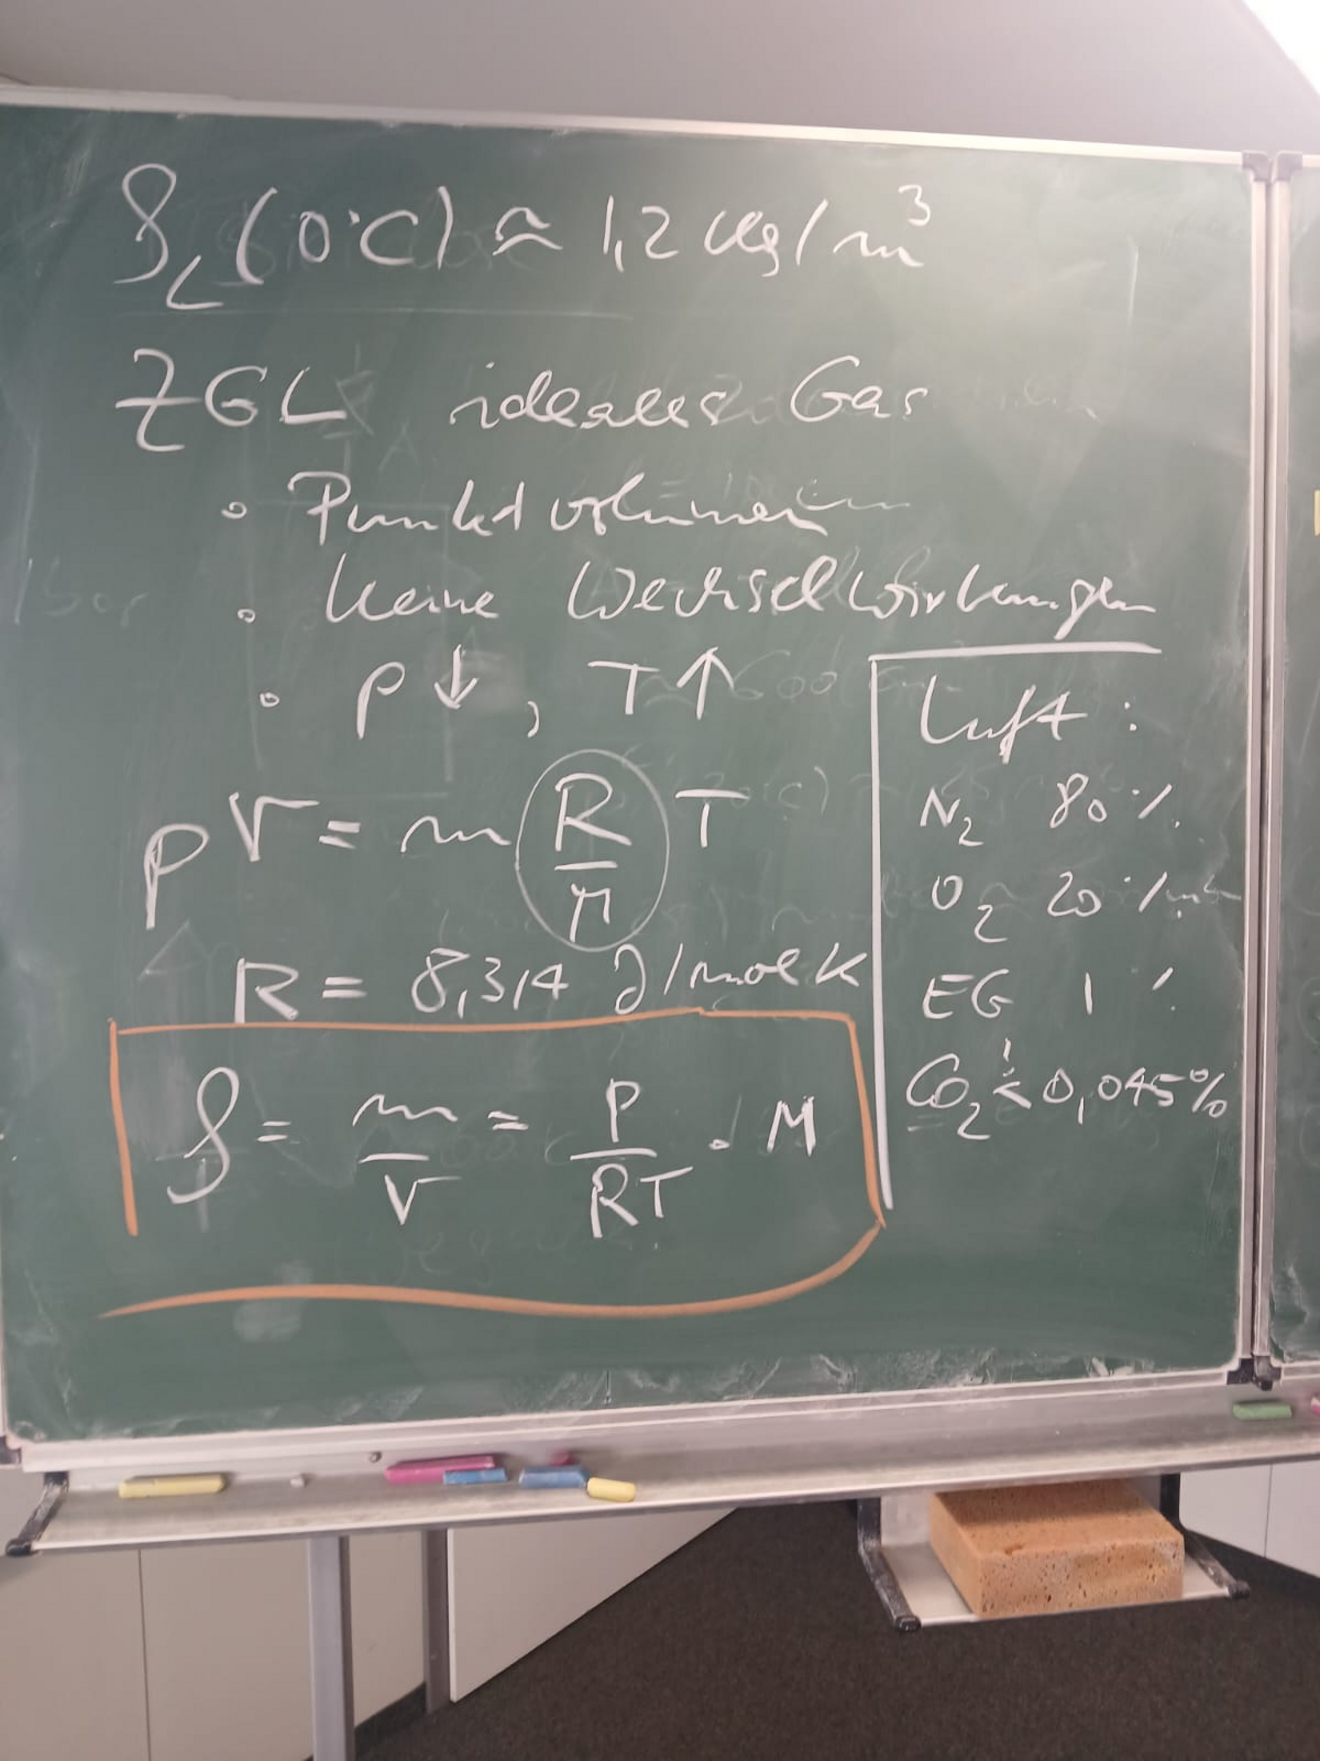 ρ_L (0°C) ≈ 1,2 kg/m³
ZGL ideales Gas
• Punktvolumen
• keine Wechselwirkungen
• p ↓, T ↑
pV = m R/M T
R = 8,314 J/mol K
ρ = m/V = p/RT · M
Luft:
N₂ 80 %
O₂ 20 %
EG 1 %
CO₂ < 0,045 %